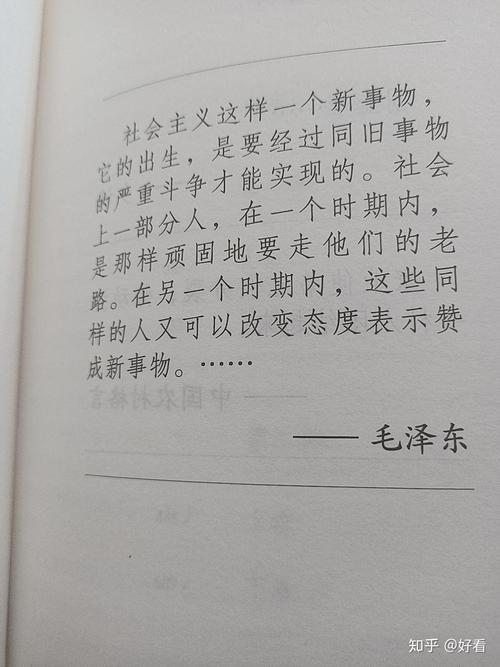 社会主义这样一个新事物，
它的出生，是要经过同旧事物
的严重斗争才能实现的。社会
上一部分人，在一个时期内，
是那样顽固地要走他们的老
路。在另一个时期内，这些同
样的人又可以改变态度表示赞
成新事物。……
—— 毛泽东
中国农村格言
知乎 @好看